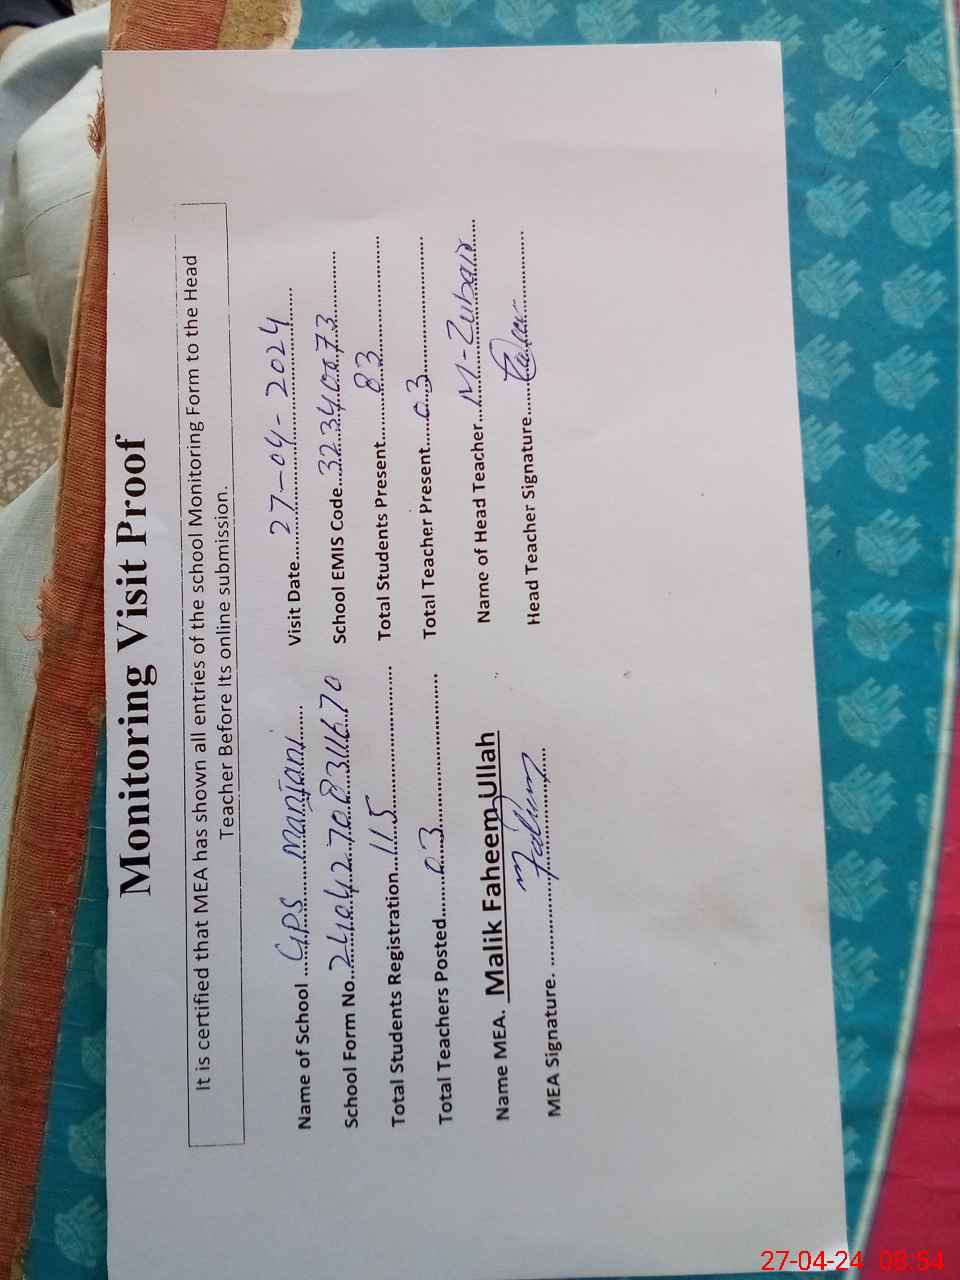 Monitoring Visit Proof
It is certified that MEA has shown all entries of the school Monitoring Form to the Head
Teacher Before Its online submission.
Name of School ....GPS Manjani.... Visit Date....27-04-2024....
School Form No....2404270831670 School EMIS Code....32340073....
Total Students Registration....115.... Total Students Present....83....
Total Teachers Posted....03.... Total Teacher Present....03....
Name MEA. Malik Faheem Ullah Name of Head Teacher....M-Zubair....
MEA Signature. .... Head Teacher Signature....
27-04-24 08:54